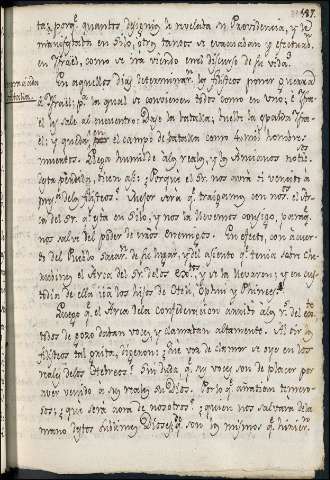 187.
tas, porq. quantos designios le revelada su Providencia, y le
manifestaba en Silo, otros tantos se evacuaban y efectuab.
en Israel, como se irá viendo en el discurso de su vida.
En aquellos dias determinaron los filisteos poner guerra
á Israel; pa. la qual se convienen todos como en uno, é Isra
el les sale al encuentro: Dase la batalla, buelve la espalda Isra-
el; y quedan en el campo de batalla como 4. mil hombres
muertos. Llega humilde á los reales, y los Ancianos
esta perdida, dicen asi: Porqué el Sr. nos avrá
los filisteos? Mejor será q. traigamos con nos. el
ca del Sr. q. está en Silo, y nos la llevemos consigo, para q.
nos salve del poder de nros enemigos. En efecto, con acuer-
do del Pueblo sacan de su lugar, y del asiento q. tenia sobre Che-
rubines el Arca del Sr. de los y se la llevaron; y en cus-
todia de ella ivā los hijos de Helí, Ophni y Phinees.
Luego q. el Arca de la confederacion
todos de gozo daban voces, y clamaban altamente. Al oir los
filisteos tal grita, digeron: Qué voz de clamor se oye en los
reales de los Hebreos? Sin duda q. sus voces son de placer por
aver venido a sus reales su Dios. Por lo q. añadian temero-
sos; que será aora de nosotros? quien nos salvará de la
mano de estos sublimes Dioses, q. son los mismos q. hirier.